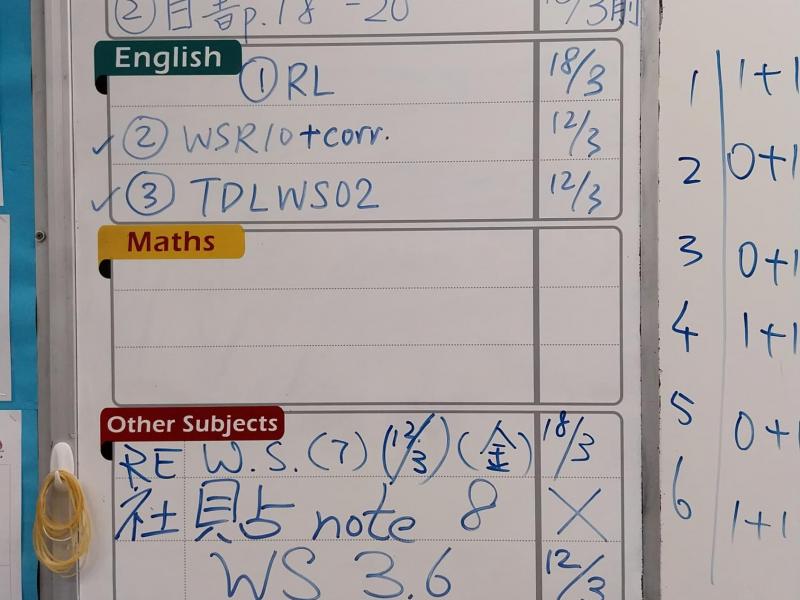 ② 自書p.18-20 10/3前
English
① RL 18/3
✓ ② WSR10+corr. 12/3
✓ ③ TDLWS02 12/3
Maths
Other Subjects
RE W.S.(7) (12/3) (金) 18/3
社 貝占 note 8 X
WS 3.6 12/3
1 1+1
2 0+1
3 0+1
4 1+1
5 0+1
6 1+1